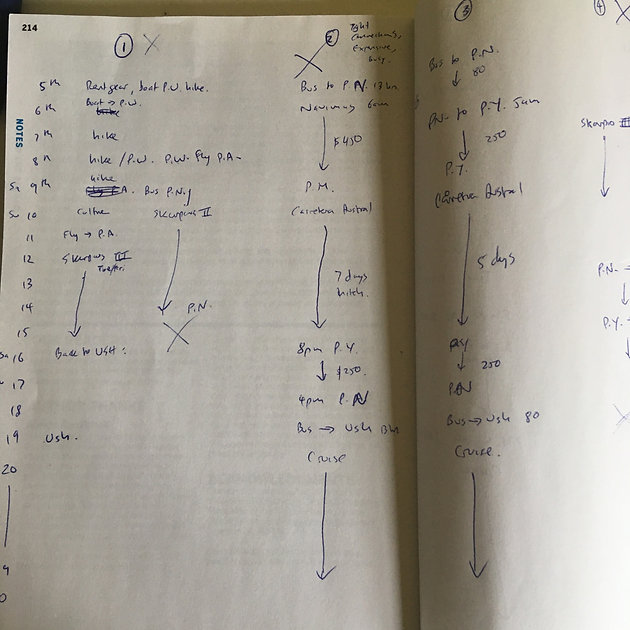 214
NOTES
1 X
5th Rent gear, boat P.W. hike.
6th Boat → P.W.
7th hike
8th hike / P.W. P.W. Fly P.A.
hike
Sa 9th A. Bus P.N.
Su 10 Culture Skorpios II
11 Fly → P.A.
12 Skorpios III
13
14 P.N.
15
16 Back to USH.
17
18
19 Ush.
20
2 X
Tight
Connections,
Expensive,
busy.
Bus to P.N. 13 hrs
Navimag 6am
$450
P.M.
Carretera Austral
7 days
hitch.
8pm P.Y.
$250.
4pm P.N
Bus → Ush 13hrs
Cruise
3
Bus to P.N.
80
PN. to P.Y. 5am
250
P.Y.
Carretera Austral
5 days
250
PN
Bus → Ush 80
Cruise.
4 X
Skorpios III
P.N. →
P.Y. →